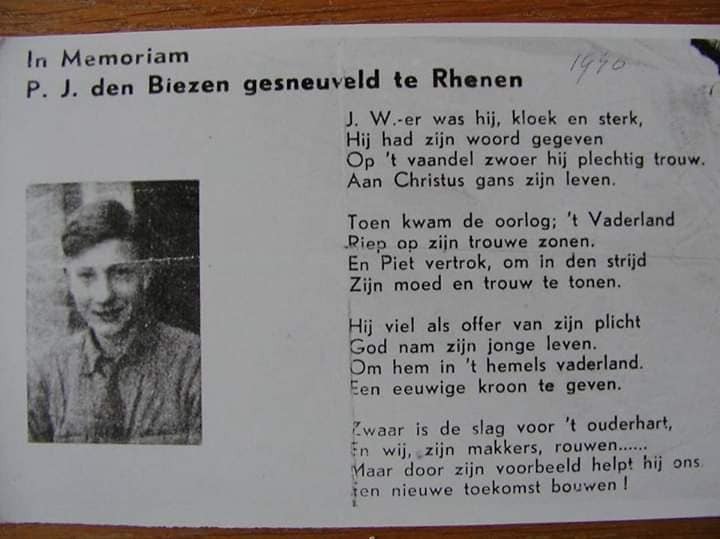 In Memoriam
P. J. den Biezen gesneuveld te Rhenen
1940
J. W.-er was hij, kloek en sterk,
Hij had zijn woord gegeven
Op 't vaandel zwoer hij plechtig trouw.
Aan Christus gans zijn leven.
Toen kwam de oorlog; 't Vaderland
Riep op zijn trouwe zonen.
En Piet vertrok, om in den strijd
Zijn moed en trouw te tonen.
Hij viel als offer van zijn plicht
God nam zijn jonge leven.
Om hem in 't hemels vaderland.
Een eeuwige kroon te geven.
Zwaar is de slag voor 't ouderhart,
En wij, zijn makkers, rouwen......
Maar door zijn voorbeeld helpt hij ons
een nieuwe toekomst bouwen!